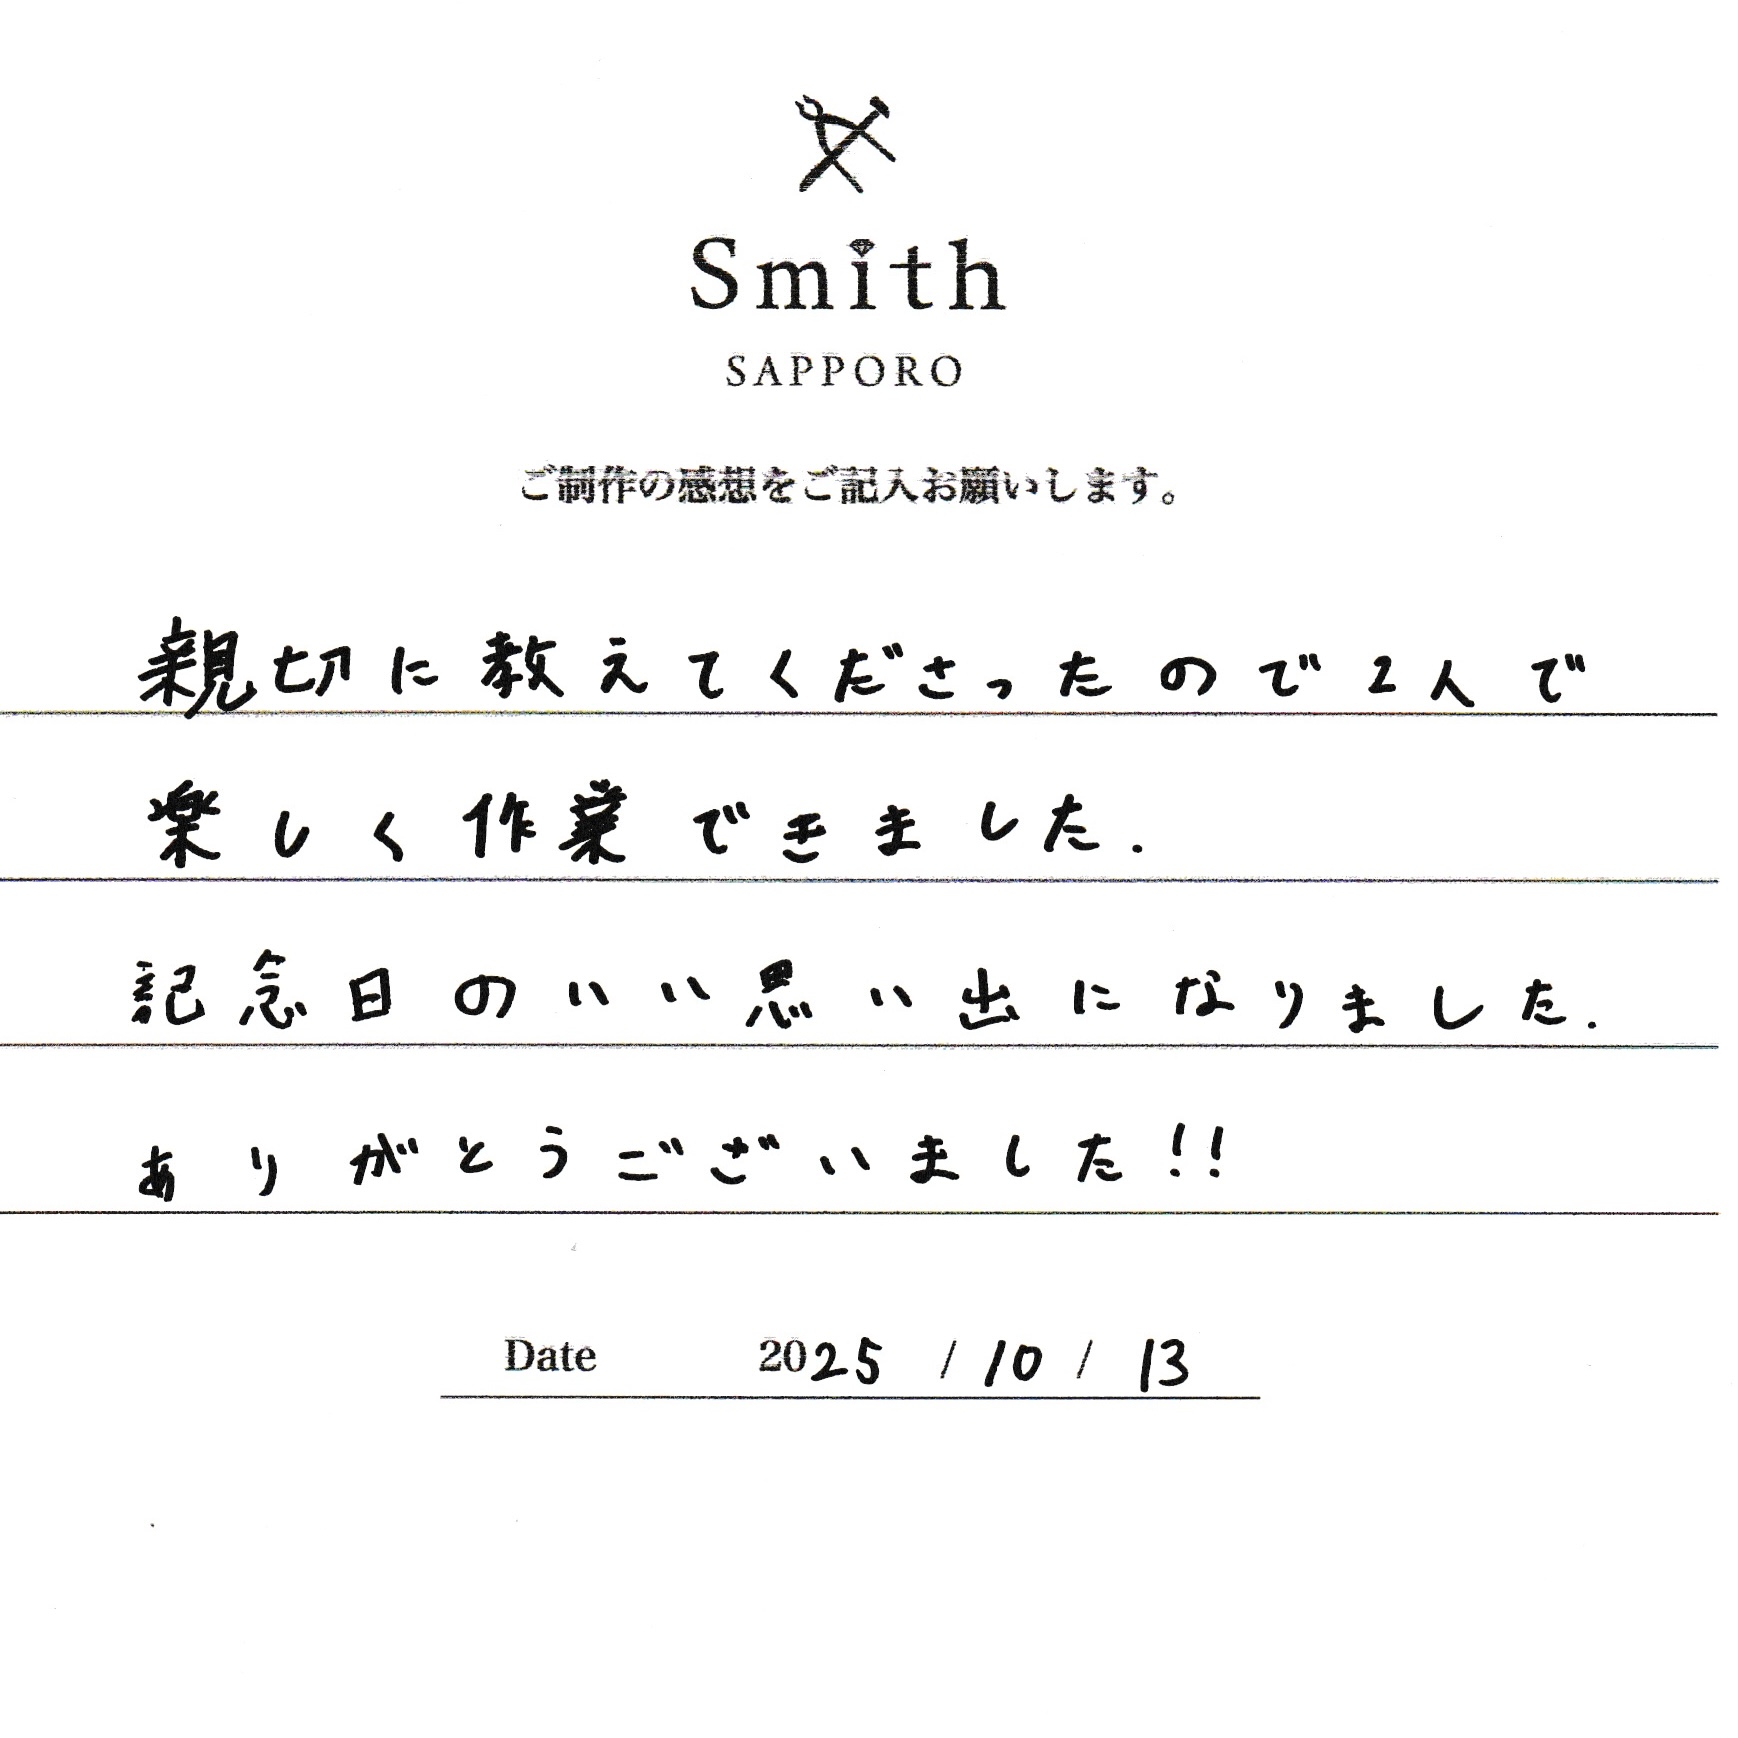 Smith
SAPPORO
ご制作の感想をご記入お願いします。
親切に教えてくださったので2人で
楽しく作業できました.
記念日のいい思い出になりました.
ありがとうございました!!
Date 2025 / 10 / 13